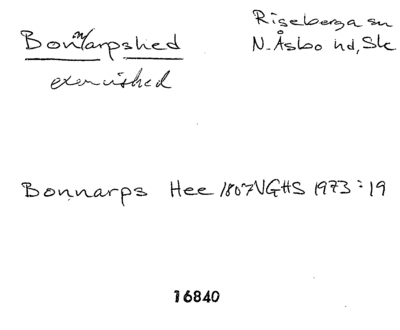 Bonnarpshed
Riseberga sn
N. Åsbo hd, Sk
Bonnarps Hee 1807 VGHS 1973:19
16840